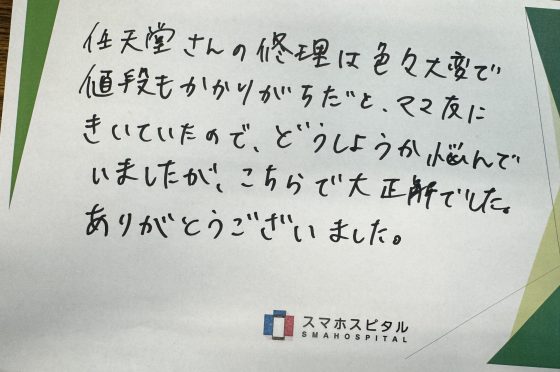 任天堂さんの修理は色々大変で
値段もかかりがちだと、ママ友に
きいていたので、どうしようか悩んで
いましたが、こちらで大正解でした。
ありがとうございました。
スマホスピタル
SMAHOSPITAL